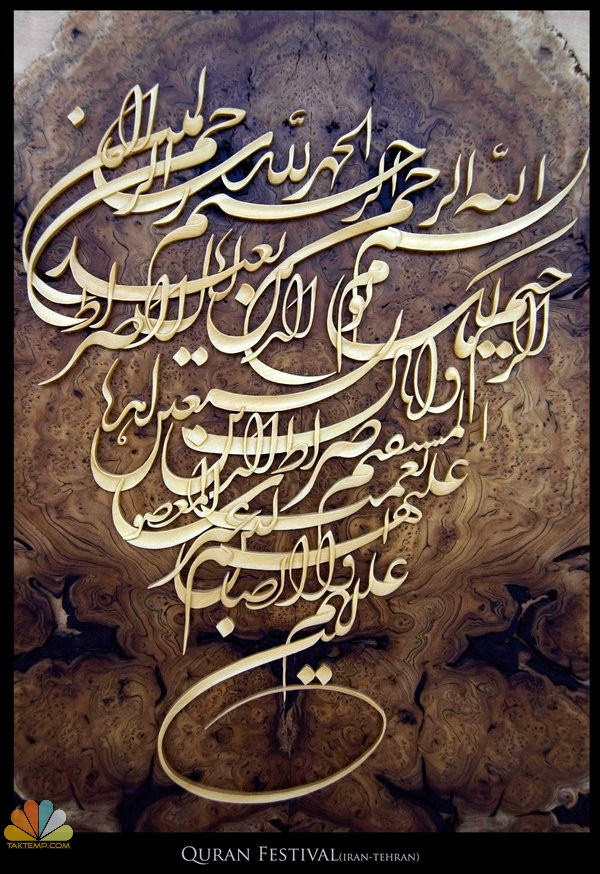 بسم الله الرحمن الرحیم الحمد لله رب العالمین
الرحمن الرحیم مالک یوم الدین ایاک نعبد
و ایاک نستعین اهدنا الصراط
المستقیم صراط الذین
انعمت علیهم غیر المغضوب
علیهم ولا الضالین
TAKTEMP.COM
QURAN FESTIVAL(IRAN-TEHRAN)